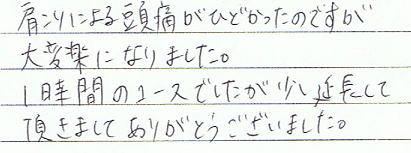 肩こりによる頭痛がひどかったのですが
大変楽になりました。
1時間のコースでしたが少し延長して
頂きましてありがとうございました。